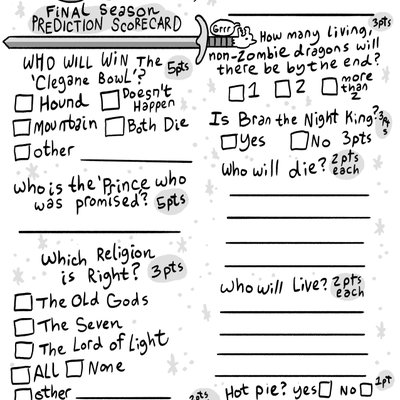 FINAL SEASON
PREDICTION SCORECARD
WHO WILL WIN THE
'Clegane Bowl'? 5pts
Hound
Doesn't Happen
Mountain
Both Die
other
Who is the 'Prince who
was promised? 5pts
Which Religion
is Right? 3pts
The Old Gods
The Seven
The Lord of Light
All
None
other
Grrr
3pts
How many living,
non-Zombie dragons will
there be by the end?
1
2
more than 2
Is Bran the Night King?
Yes
No 3pts
Who will die? 2pts each
Who will Live? 2pts each
Hot pie? yes No 1pt